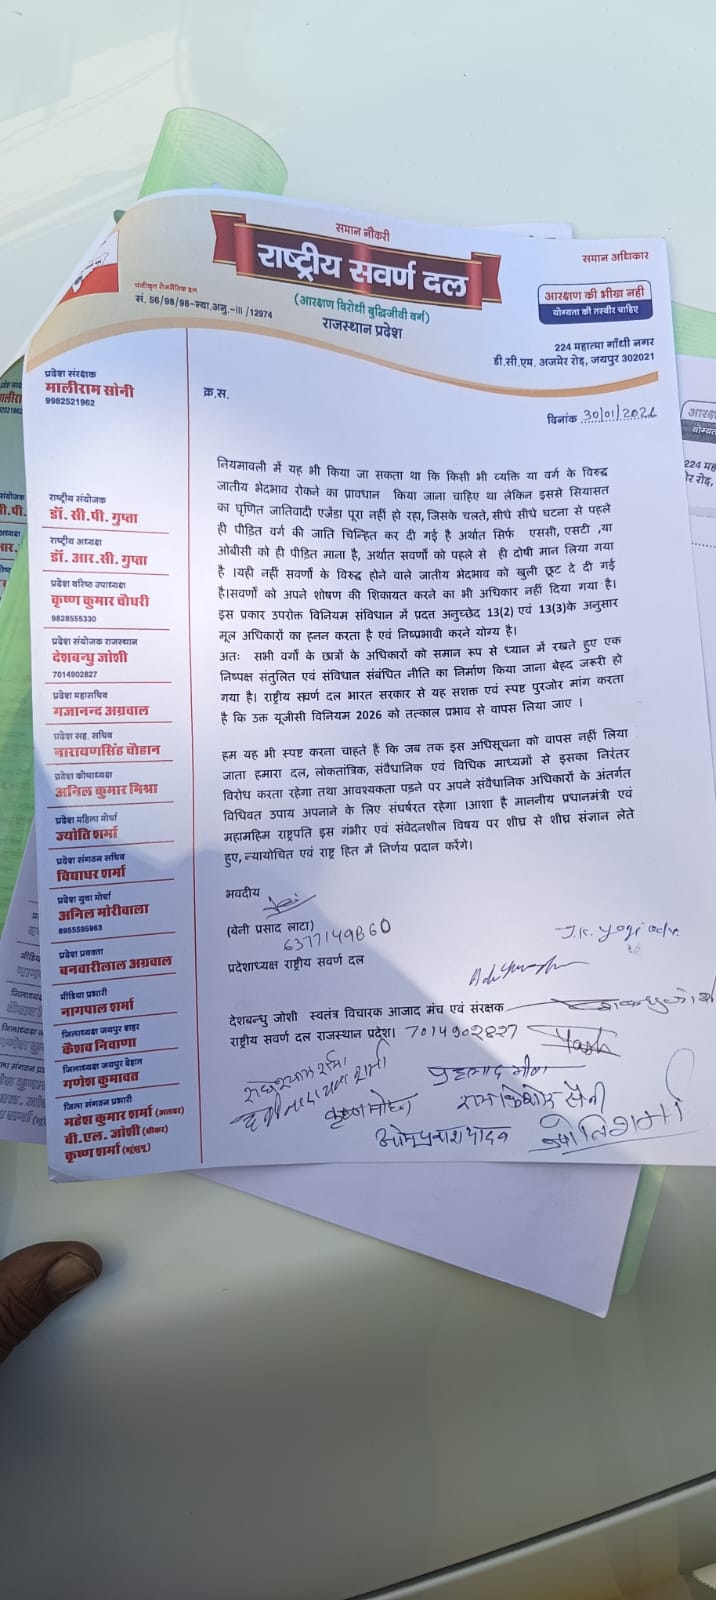 समान नौकरी
समान अधिकार
राष्ट्रीय सवर्ण दल
पंजीकृत राजनैतिक दल
सं. 56/98/98-स्था.अनु.-III/12974
(आरक्षण विरोधी बुद्धिजीवी वर्ग)
राजस्थान प्रदेश
आरक्षण की भीख नही
योग्यता की तस्वीर चाहिए
224 महात्मा गाँधी नगर
डी.सी.एम. अजमेर रोड़, जयपुर 302021
क्र.स.
दिनांक 30/01/2026
प्रदेश संरक्षक
मालीराम सोनी
9982521962
राष्ट्रीय संयोजक
डॉ. सी.पी. गुप्ता
राष्ट्रीय अध्यक्ष
डॉ. आर.सी. गुप्ता
प्रदेश वरिष्ठ उपाध्यक्ष
कृष्ण कुमार चौधरी
9828555330
प्रदेश संयोजक राजस्थान
देशबन्धु जोशी
7014902827
प्रदेश महासचिव
गजानन्द अग्रवाल
प्रदेश सह. सचिव
नारायणसिंह चौहान
प्रदेश कोषाध्यक्ष
अनिल कुमार मिश्रा
प्रदेश महिला मोर्चा
ज्योति शर्मा
प्रदेश संगठन सचिव
विद्याधर शर्मा
प्रदेश युवा मोर्चा
अनिल मोरीवाला
8955595963
प्रदेश प्रवक्ता
बनवारीलाल अग्रवाल
मीडिया प्रभारी
नागपाल शर्मा
जिलाध्यक्ष जयपुर शहर
कैशव निवाणा
जिलाध्यक्ष जयपुर देहात
गणेश कुमावत
जिला संगठन प्रभारी
महेश कुमार शर्मा (अलवर)
बी.एल. जोशी (सीकर)
कृष्ण शर्मा (झुंझुनू)
नियमावली में यह भी किया जा सकता था कि किसी भी व्यक्ति या वर्ग के विरुद्ध
जातीय भेदभाव रोकने का प्रावधान किया जाना चाहिए था लेकिन इससे सियासत
का घृणित जातिवादी एजेंडा पूरा नहीं हो रहा, जिसके चलते, सीधे सीधे घटना से पहले
ही पीड़ित वर्ग की जाति चिन्हित कर दी गई है अर्थात सिर्फ एससी, एसटी ,या
ओबीसी को ही पीड़ित माना है, अर्थात सवर्णों को पहले से ही दोषी मान लिया गया
है ।यही नहीं सवर्णों के विरुद्ध होने वाले जातीय भेदभाव को खुली छूट दे दी गई
है।सवर्णों को अपने शोषण की शिकायत करने का भी अधिकार नहीं दिया गया है।
इस प्रकार उपरोक्त विनियम संविधान में प्रदत अनुच्छेद 13(2) एवं 13(3)के अनुसार
मूल अधिकारों का हनन करता है एवं निष्प्रभावी करने योग्य है।
अतः सभी वर्गों के छात्रों के अधिकारों को समान रूप से ध्यान में रखते हुए एक
निष्पक्ष संतुलित एवं संविधान संबंधित नीति का निर्माण किया जाना बेहद जरूरी हो
गया है। राष्ट्रीय सवर्ण दल भारत सरकार से यह सशक्त एवं स्पष्ट पुरजोर मांग करता
है कि उक्त यूजीसी विनियम 2026 को तत्काल प्रभाव से वापस लिया जाए ।
हम यह भी स्पष्ट करना चाहते हैं कि जब तक इस अधिसूचना को वापस नहीं लिया
जाता हमारा दल, लोकतांत्रिक, संवैधानिक एवं विधिक माध्यमों से इसका निरंतर
विरोध करता रहेगा तथा आवश्यकता पड़ने पर अपने संवैधानिक अधिकारों के अंतर्गत
विधिवत उपाय अपनाने के लिए संघर्षरत रहेगा ।आशा है माननीय प्रधानमंत्री एवं
महामहिम राष्ट्रपति इस गंभीर एवं संवेदनशील विषय पर शीघ्र से शीघ्र संज्ञान लेते
हुए, न्यायोचित एवं राष्ट्र हित में निर्णय प्रदान करेंगे।
भवदीय
(बेनी प्रसाद लाटा)
6377149860
J.K. Yogi adv.
प्रदेशाध्यक्ष राष्ट्रीय सवर्ण दल
देशबन्धु जोशी स्वतंत्र विचारक आजाद मंच एवं संरक्षक
राष्ट्रीय सवर्ण दल राजस्थान प्रदेश। 7014902827
Yash
राधेश्याम शर्मा
प्रहलाद मीणा
रामकिशोर सैनी
ओमप्रकाश यादव
ज्योति शर्मा